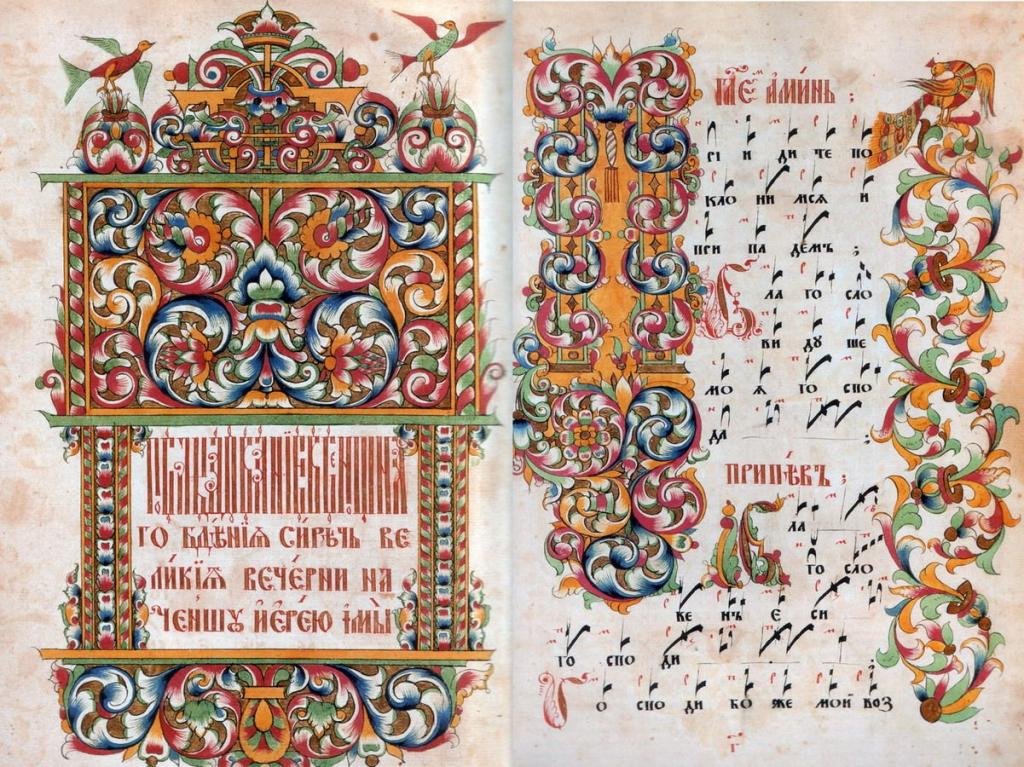 го бдѣ́нїѧ си́рѣчь ве
ли́кїѧ вече́рни на
че́ншꙋ їере́ю і҆мы̀
гл҃е ᲂмъ ами́нь ;
П рі и ди те по
кло ни мсѧ и
при па демъ ;
Б ла го сло
ви дꙋ ше
мо ѧ го спо
да ;
припѣ́въ ;
Б ла
го сло
ве нъ е си
го спо ди ;
Г о спо ди бо же мой воз